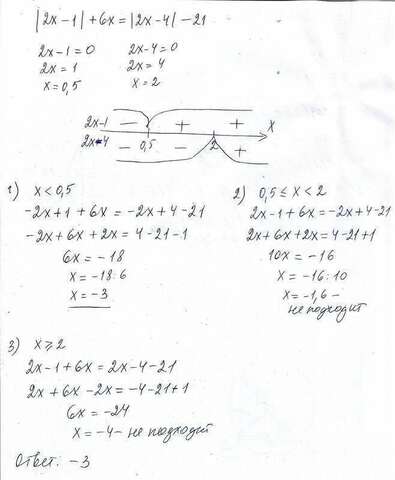 |2x-1|+6x=|2x-4|-21
2x-1=0 2x-4=0
2x=1 2x=4
x=0,5 x=2
2x-1 - + + x
2x-4 - 0,5 - 2 +
1) x<0,5
-2x+1+6x=-2x+4-21
-2x+6x+2x=4-21-1
6x=-18
x=-18:6
x=-3
2) 0,5≤x<2
2x-1+6x=-2x+4-21
2x+6x+2x=4-21+1
10x=-16
x=-16:10
x=-1,6 -
не подходит
3) x⩾2
2x-1+6x=2x-4-21
2x+6x-2x=-4-21+1
6x=-24
x=-4- не подходит
Ответ: -3